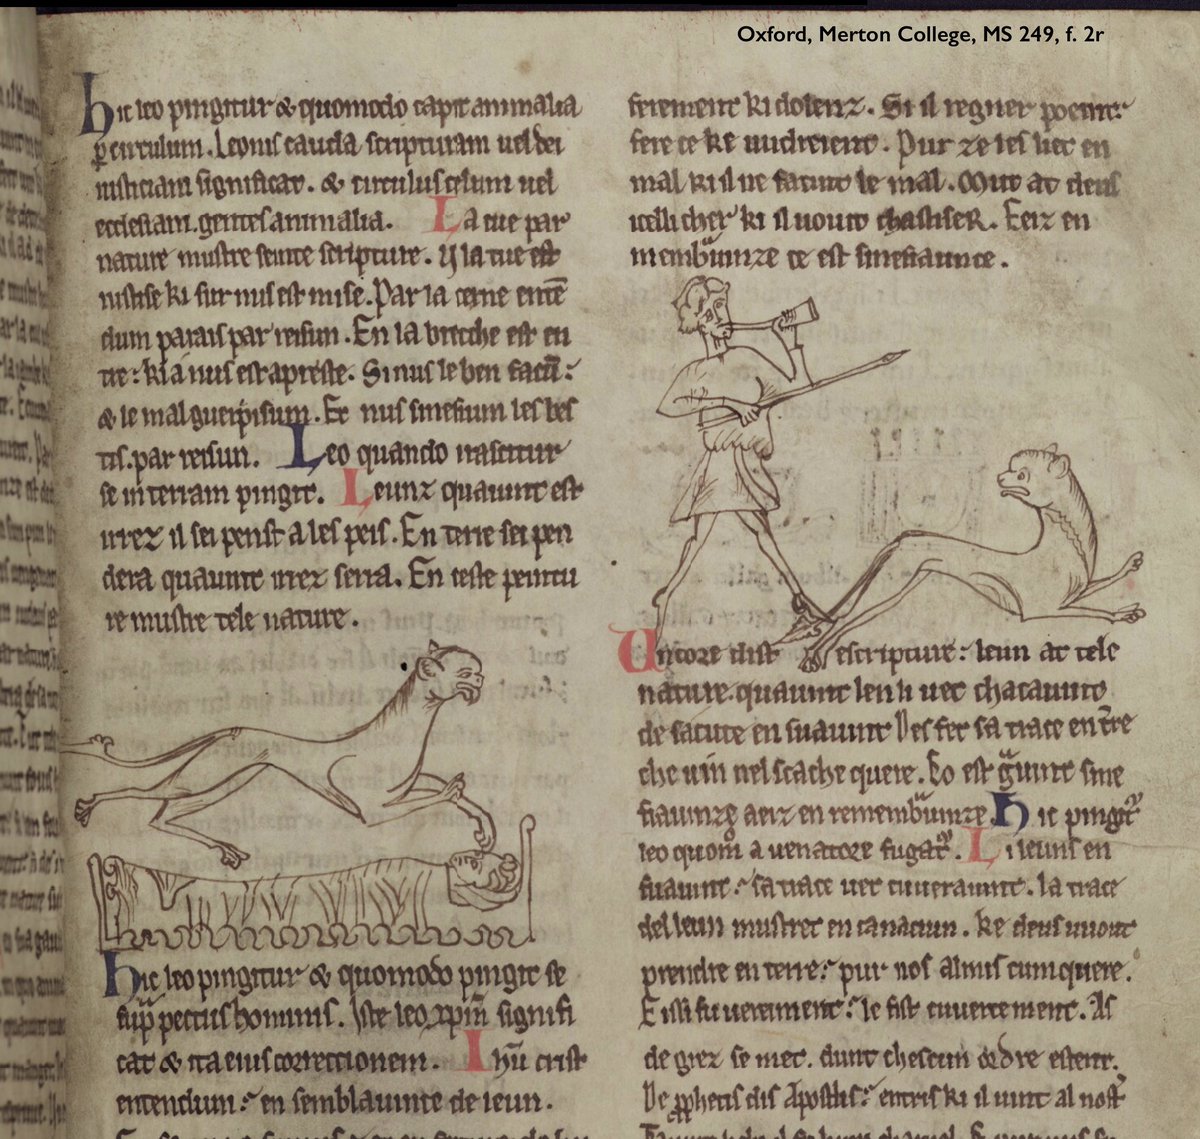 Oxford, Merton College, MS 249, f. 2r
hic leo pingitur & quomodo capit animalia
p circulum. Leonis cauda scripturam uel dei
iusticiam significat. & circulus celum uel
ecclesiam. gentes animalia. La cue par
nature mustre seinte scripture. y la cue est
iustise ki sur nus est mise. Par la cerne entē
dum parais par reisun. En la breche est en
tre: ki a nus est apreste. Si nus le ben facū:
& le mal guerpisum. Et nus sinefium les bes
tes. par reisun. Leo quando nascitur
se in terram pingit. Leunz quaunt est
irrez il sei penst a les peis. En terre sei pen
dera quaunt irrez serra. En teste peintu
re mustre tele nature.
hic leo pingitur & quomodo pingit se
sup pectus hominis. Iste leo xpm signifi
cat & ita eius correctionem. Ihu crist
entendum: en semblaunte de leun.
ferement ki dolenz. Si il regner poeint:
fere ce ke uudreient. Pur ze les met en
mal ki il ne facint le mal. Mut at deus
icelli cher ki il uout chastiseR. Eeiz en
membraunze ce est sinefiaunce.
Uncore dist escripture: leun at tele
nature quaunt len li uet chacaunt
de sa cute en fuaunt Desfet sa trace en tre
che uin nel scache quere. Eo est graunt sine
fiaunze aeiz en remembraunze. Hic pingit
leo quom a uenatore fugat. Li leuns en
fuaunt: sa trace uet cuueraunt. la trace
del leun mustret en carnaciun. Ke deus uuout
prendre en terre: pur nos almes cumquere.
E issi fu uerament: le fist cuuertement. As
de grez se met. dunt chescun ordre esteit.
De prophetis dis Apostles: entris ki il uint al nost